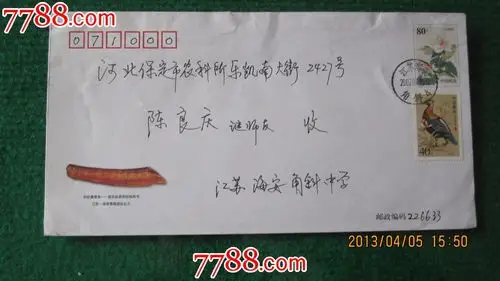 7788.com
071000
80分
河北保定市农科所乐凯南大街2427号
陈良庆 谜师友 收
40分
江苏海安角斜中学
邮政编码 226633
2013/04/05 15:50
7788.com